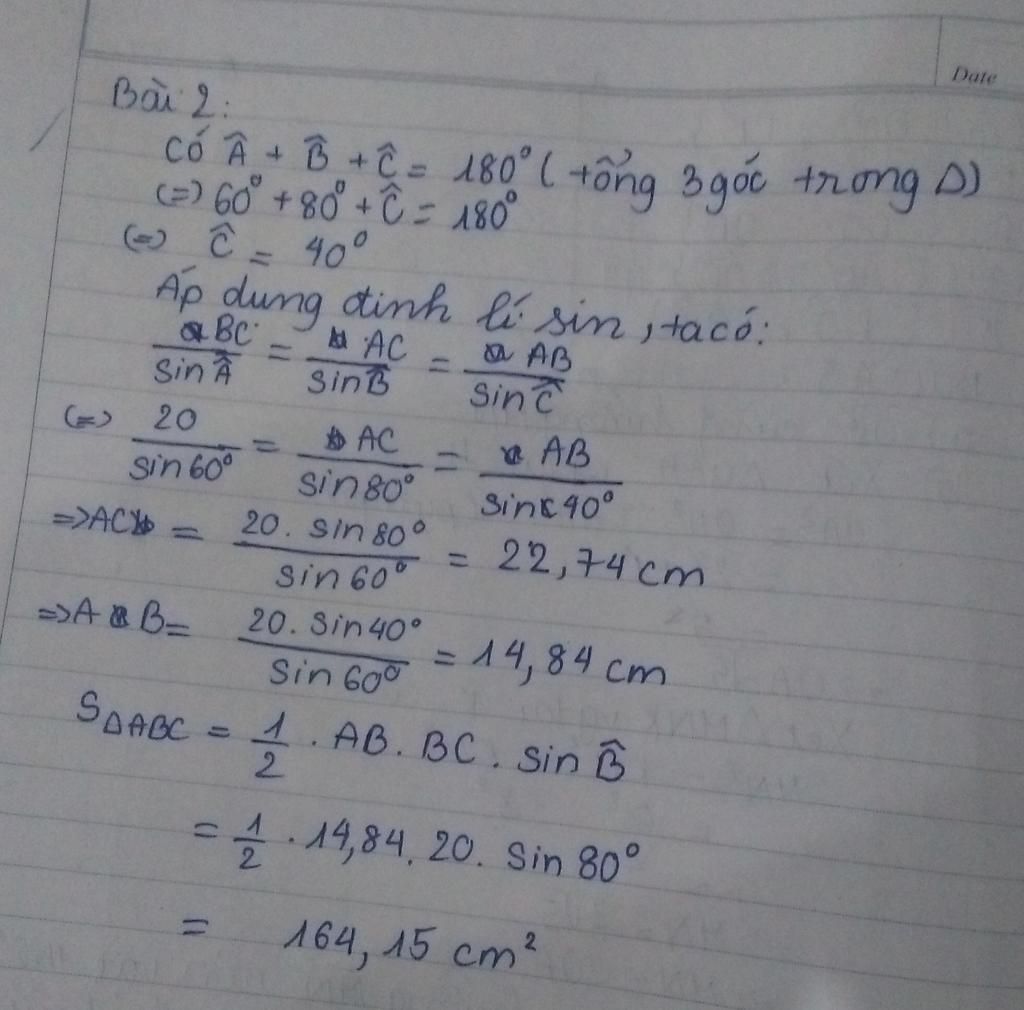 Date
Bài 2:
Có Â + B̂ + Ĉ = 180° ( tổng 3 góc trong Δ)
(=) 60° + 80° + Ĉ = 180°
(=) Ĉ = 40°
Áp dung đinh lí sin, ta có:
BC/sin Â = AC/sin B̂ = AB/sin Ĉ
(=) 20/sin 60° = AC/sin 80° = AB/sin 40°
=> AC = 20. sin 80°/sin 60° = 22,74 cm
=> AB = 20. sin 40°/sin 60° = 14,84 cm
SΔABC = 1/2 . AB. BC. sin B̂
= 1/2 . 14,84. 20. sin 80°
= 164,15 cm²